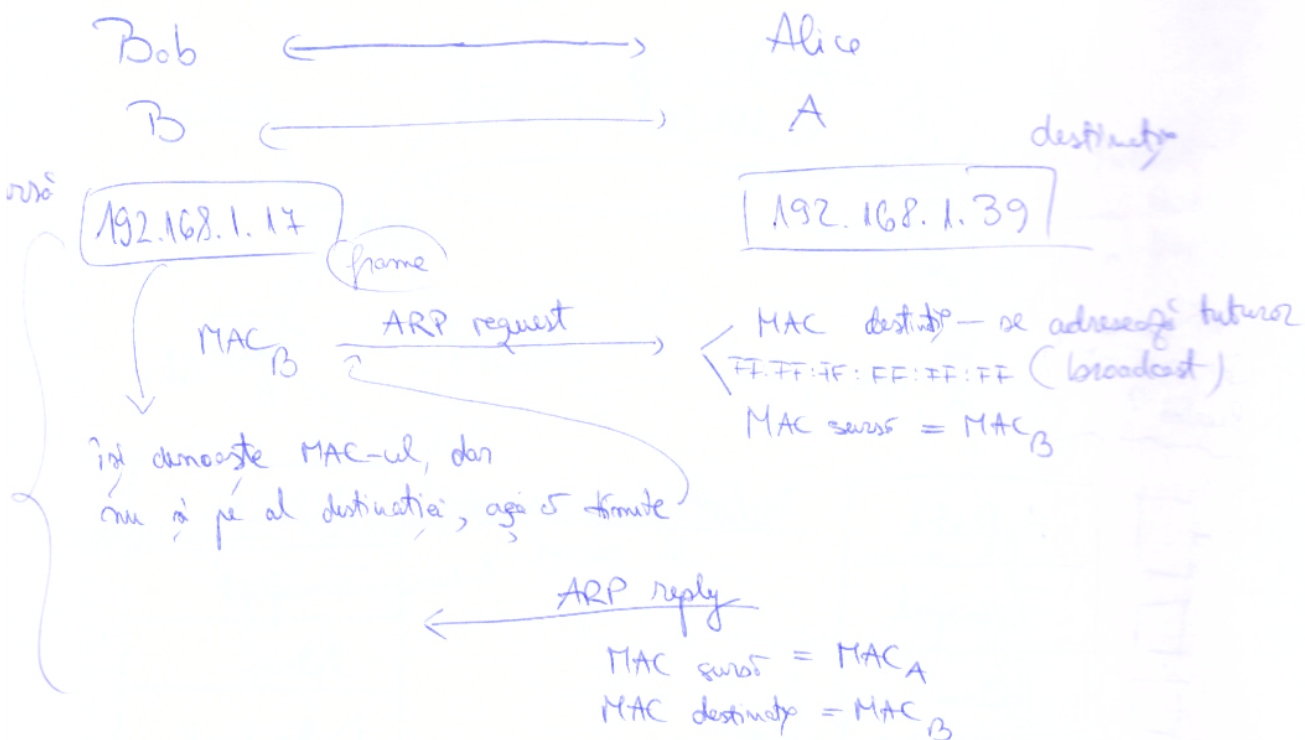 Bob Alice
B A
destinație
192.168.1.17 192.168.1.39
frame
MAC_B ARP request MAC destinație – se adresează tuturor
FF:FF:FF:FF:FF:FF (broadcast)
MAC sursă = MAC_B
își cunoaște MAC-ul, dar
nu și pe al destinației, așa că trimite
ARP reply
MAC sursă = MAC_A
MAC destinație = MAC_B